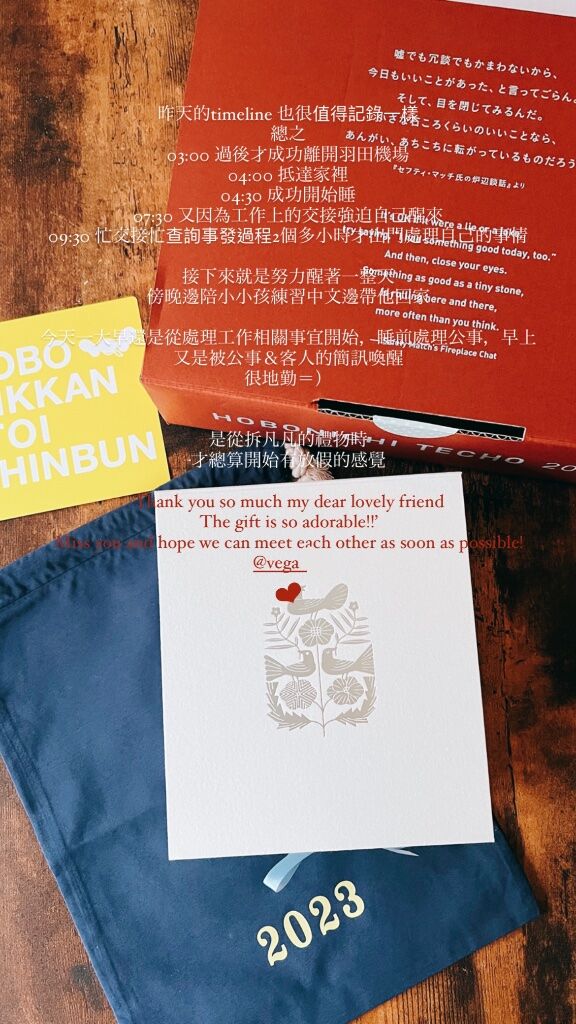 嘘でも冗談でもかまわないから、
今日もいいことがあった、と言ってごらん。
そして、目を閉じてみるんだ。
小石ころくらいのいいことなら、
あんがい、あちこちに転がっているものだろう
『セフティ・マッチ氏の炉辺談話』より
昨天的timeline 也很值得記錄一樣
總之
03:00 過後才成功離開羽田機場
04:00 抵達家裡
04:30 成功開始睡
07:30 又因為工作上的交接強迫自己醒來
09:30 忙交接忙查詢事發過程2個多小時才出門處理自己的事情
接下來就是努力醒著一整天
傍晚邊陪小小孩練習中文邊帶他回家
今天一大早還是從處理工作相關事宜開始，睡前處理公事，早上
又是被公事＆客人的簡訊喚醒
很地勤＝）
是從拆凡凡的禮物時
才總算開始有放假的感覺
It's OK if it were a lie or a joke.
you something good today, too."
And then, close your eyes.
Something as good as a tiny stone,
here and there,
more often than you think.
Match's Fireplace Chat
HOBONICHI TECHO 20
OBO
IKKAN
ITOI
SHINBUN
Thank you so much my dear lovely friend
The gift is so adorable!!’
Miss you and hope we can meet each other as soon as possible!
@vega_
2023